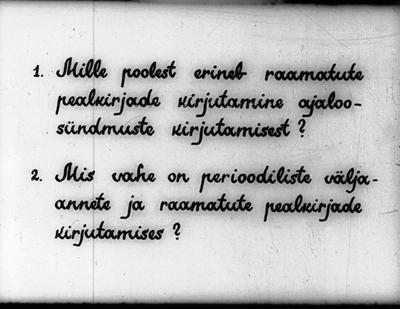 1. Mille poolest erineb raamatute
pealkirjade kirjutamine ajaloo-
sündmuste kirjutamisest?
2. Mis vahe on perioodiliste välja-
annete ja raamatute pealkirjade
kirjutamises?